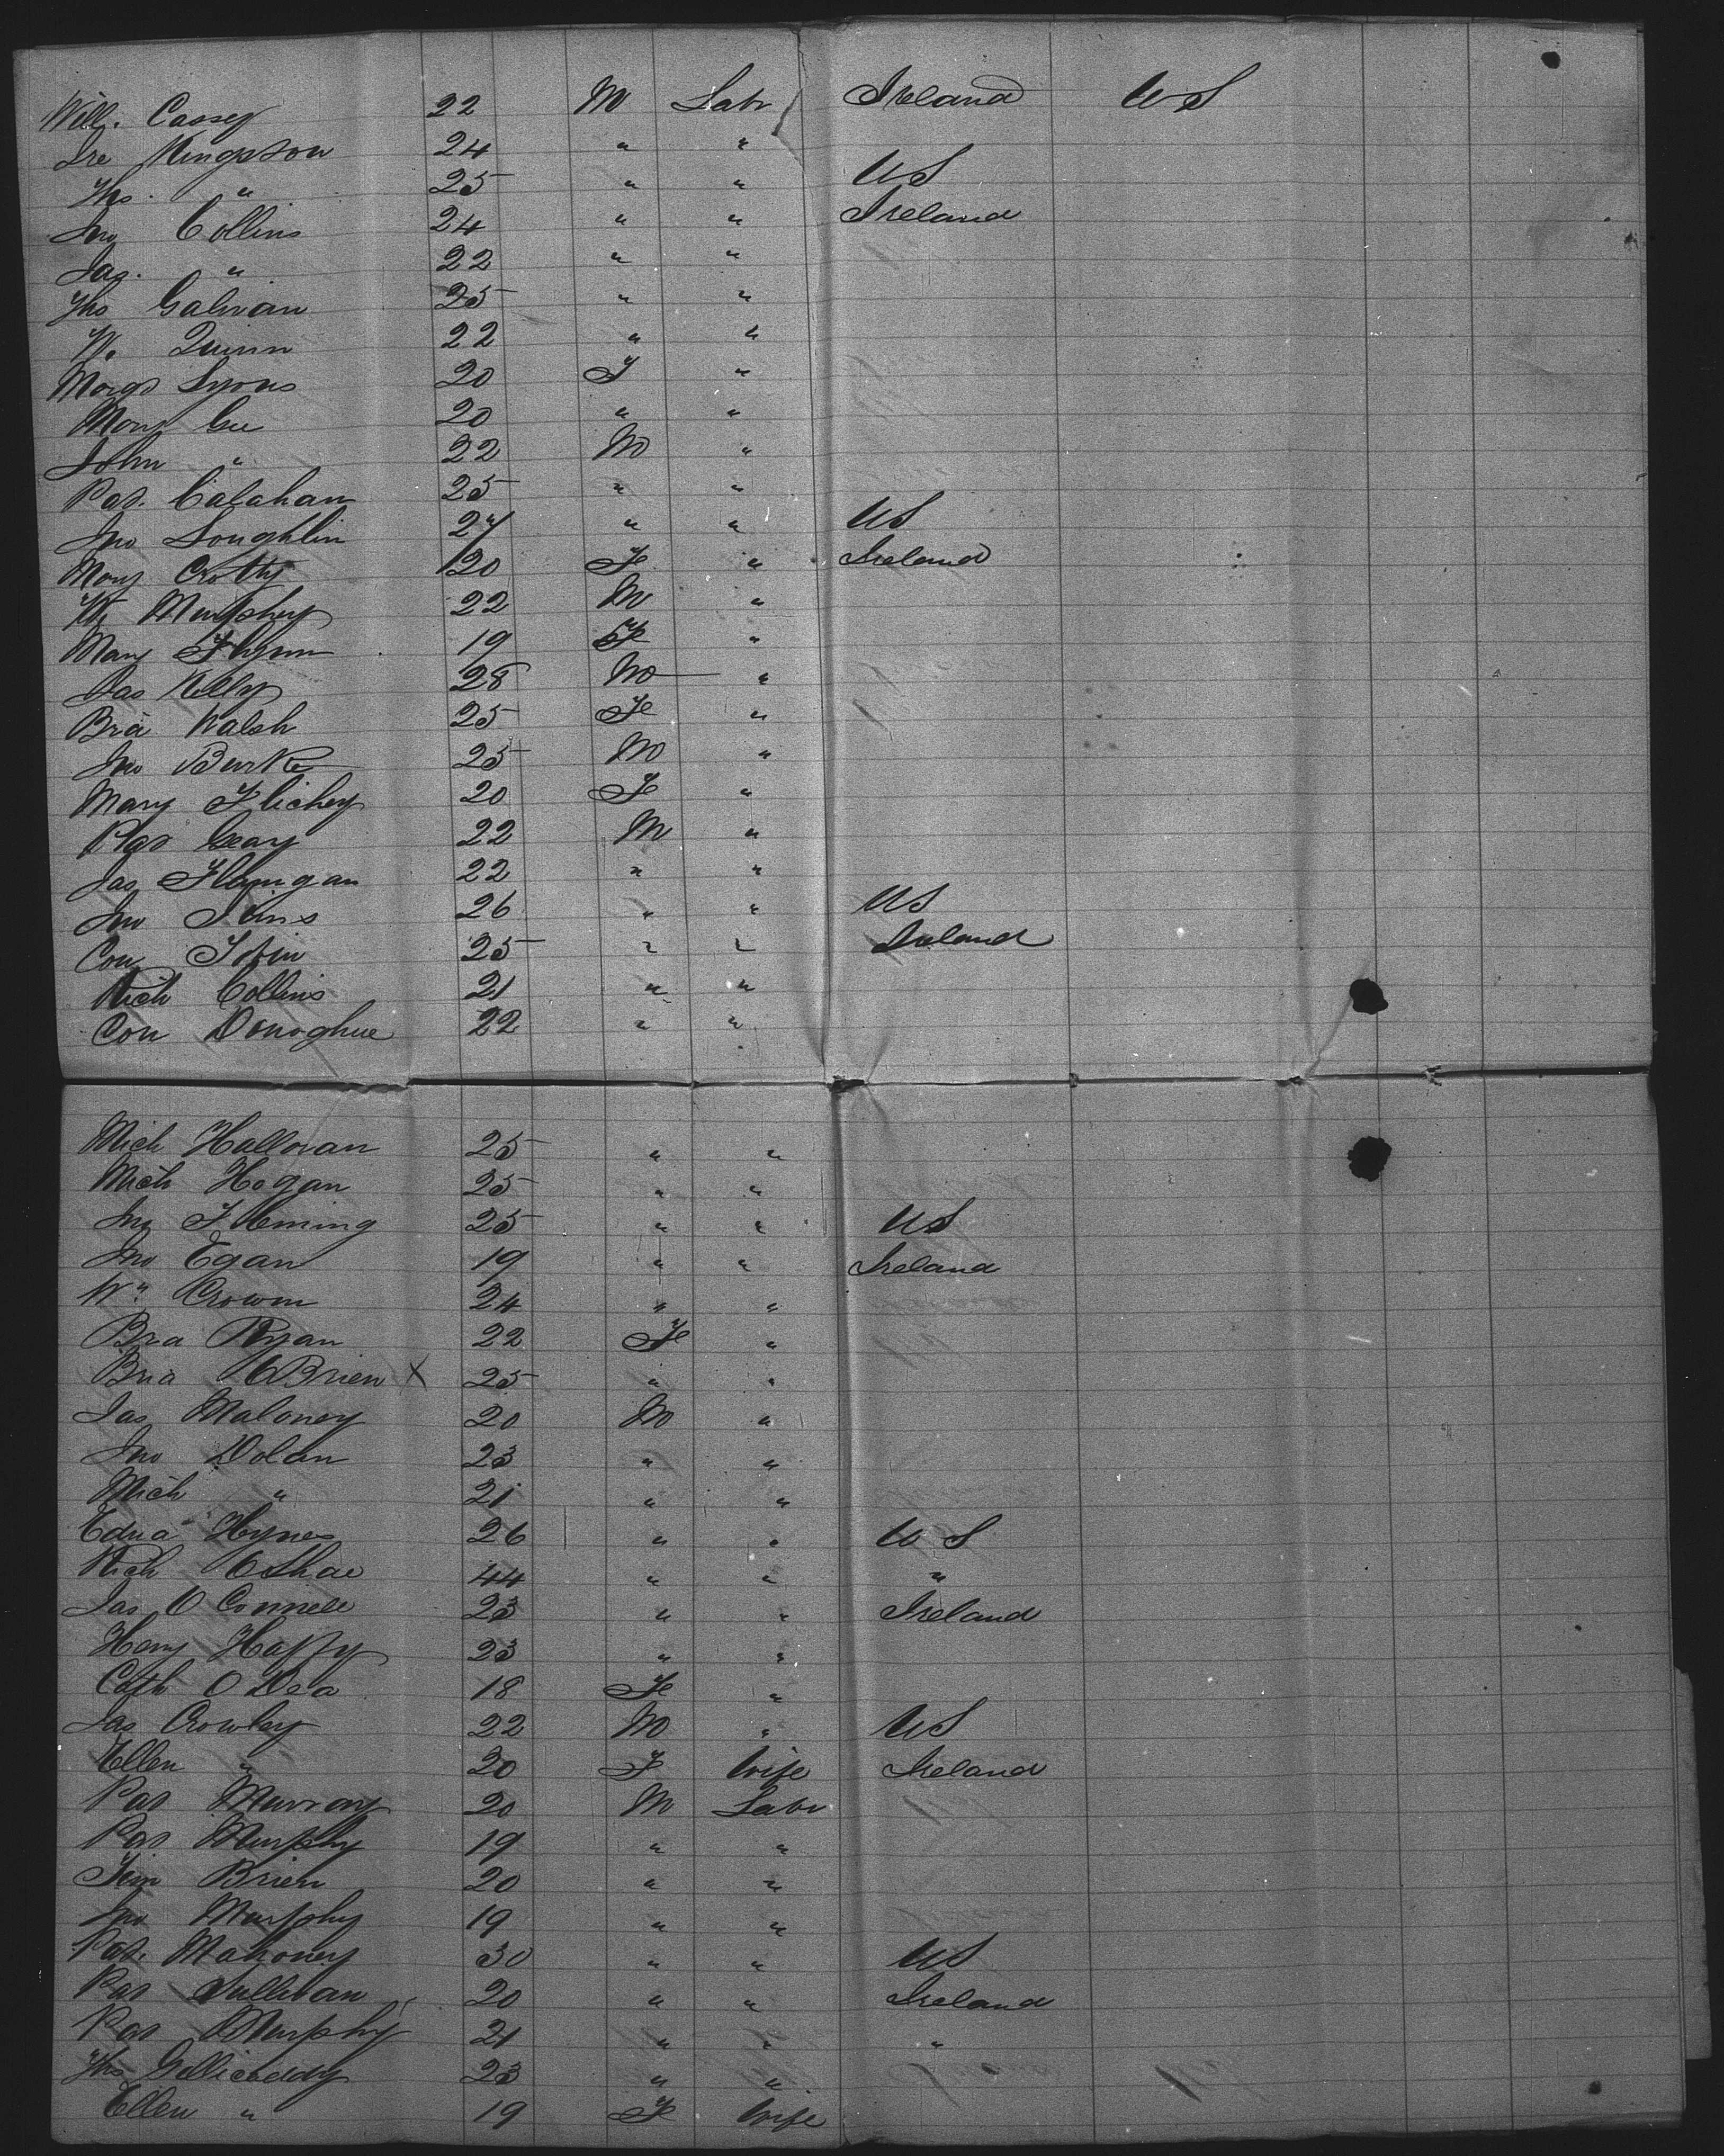 Will. Cassey 22 M Labr Ireland US
Jre Kingston 24 " "
Ths. " 25 " " US
Jno Collins 24 " " Ireland
Jas. " 22 " "
Ths Galvan 25 " "
W. Quinn 22 " "
Margt Lyons 20 F "
Mary Gee 20 " "
John " 22 M "
Pat. Calahan 25 " "
Jno Loughlin 27 " " US
Mary Crotty 20 Fe " Ireland
Murphey 22 M "
Mary Flynn 19 Fe "
Jas Kelly 28 M "
Brid Walsh 25 Fe "
Jno Burke 25 M "
Mary Flichey 20 Fe "
Pat Geary 22 M "
Jas Flanigan 22 " "
Jno 26 " " US
Con Tobin 25 " " Ireland
Rich Collins 21 " "
Con Donoghue 22 " "
Mich Halloran 25 " "
Mich Hogan 25 " "
Jno Fleming 25 " " US
Jno Egan 19 " " Ireland
Wm Crowm 24 " "
Brd Ryan 22 Fe "
Brd OBrien X 25 " "
Jas Maloney 20 M "
Jno Dolan 23 " "
Mich " 21 " "
Edwd Hynes 26 " " US
Rich OShae 44 " " "
Jas O Connell 23 " " Ireland
Hany Haffy 23 " "
Cath O Dea 18 Fe "
Jas Crowley 22 M " US
Ellen " 20 F Wife Ireland
Pat Murray 20 M Labr
Pat Murphy 19 " "
Tim Brien 20 " "
Jno Murphy 19 " "
Pat. Mahoney 30 " " US
Pat Sullivan 20 " " Ireland
Pat Murphy 21 " " "
Ths Gillicuddy 23 " "
Ellen " 19 F Wife